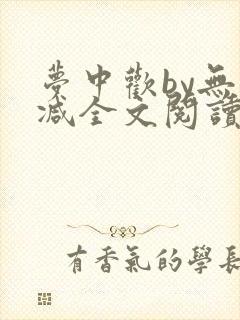 夢中歡by無
減全文閱讀
有香氣的學長